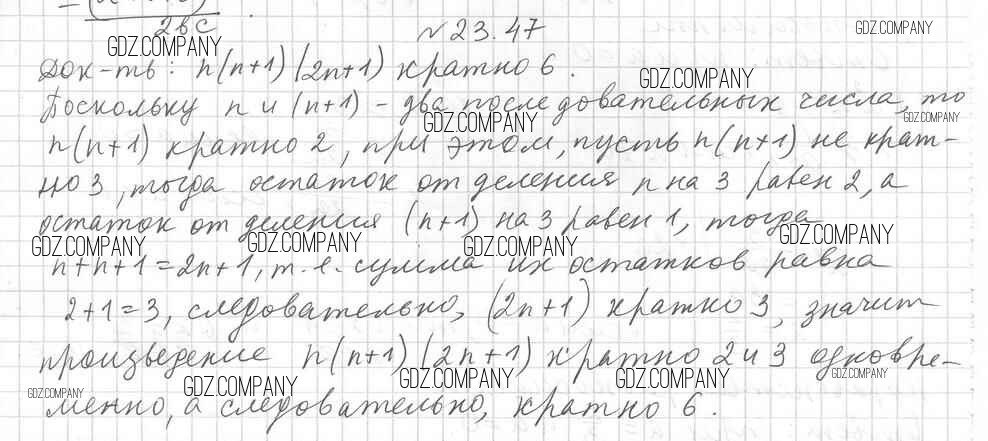 2bc
GDZ.COMPANY
№23.47
GDZ.COMPANY
Док-ть: n(n+1)(2n+1) кратно 6.
GDZ.COMPANY
Поскольку n и (n+1) - два последовательных числа, то
GDZ.COMPANY
GDZ.COMPANY
n(n+1) кратно 2, при этом, пусть n(n+1) не крат-
но 3, тогда остаток от деления n на 3 равен 2, а
остаток от деления (n+1) на 3 равен 1, тогда
GDZ.COMPANY
GDZ.COMPANY
GDZ.COMPANY
GDZ.COMPANY
n+n+1=2n+1, т.е. сумма их остатков равна
2+1=3, следовательно, (2n+1) кратно 3, значит
произведение n(n+1)(2n+1) кратно 2 и 3 одновре-
GDZ.COMPANY
GDZ.COMPANY
GDZ.COMPANY
GDZ.COMPANY
GDZ.COMPANY
менно, а следовательно, кратно 6.